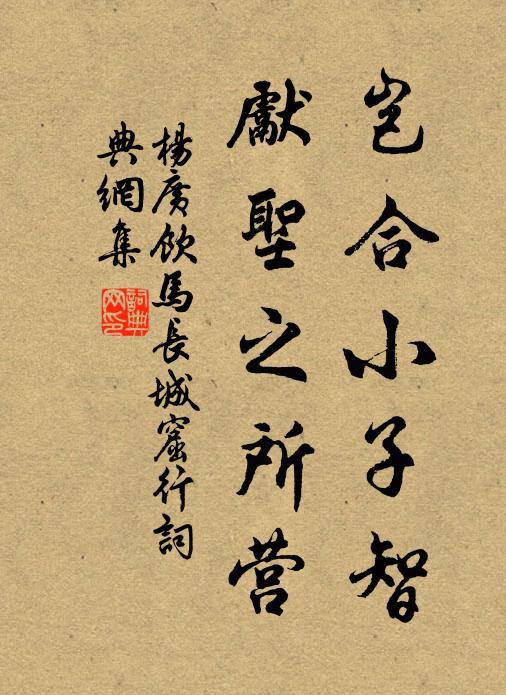 岂合小子智
獻聖之所营
楊廣飲馬長城窟行詞
典網集
詞典
网印